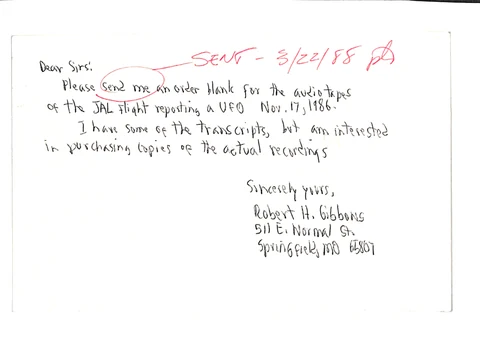 SENT - 3/22/88
Dear Sirs:
Please send me an order blank for the audio tapes
of the JAL flight reporting a UFO Nov. 17, 1986.
I have some of the transcripts, but am interested
in purchasing copies of the actual recordings
Sincerely yours,
Robert H. Gibbons
511 E. Normal St.
Springfield, MO 65807